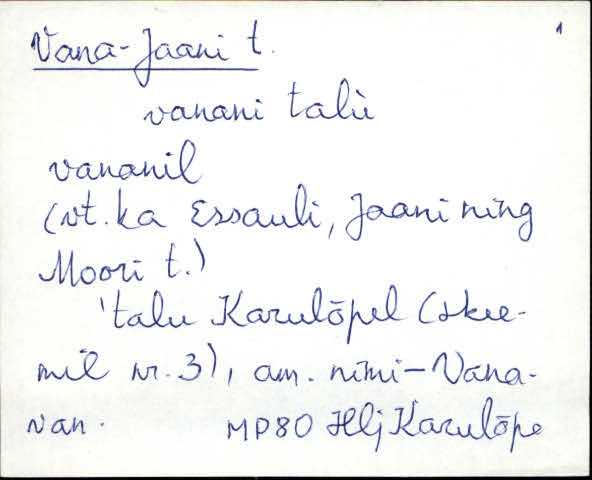 1
Vana-Jaani t.
vanani talù
vananil
(vt. ka Essauli, Jaani ning
Moori t.)
'talu Karulõpel (skee-
mil nr. 3), am. nimi - Vana-
nan. MP80 Hlj Karulõpe